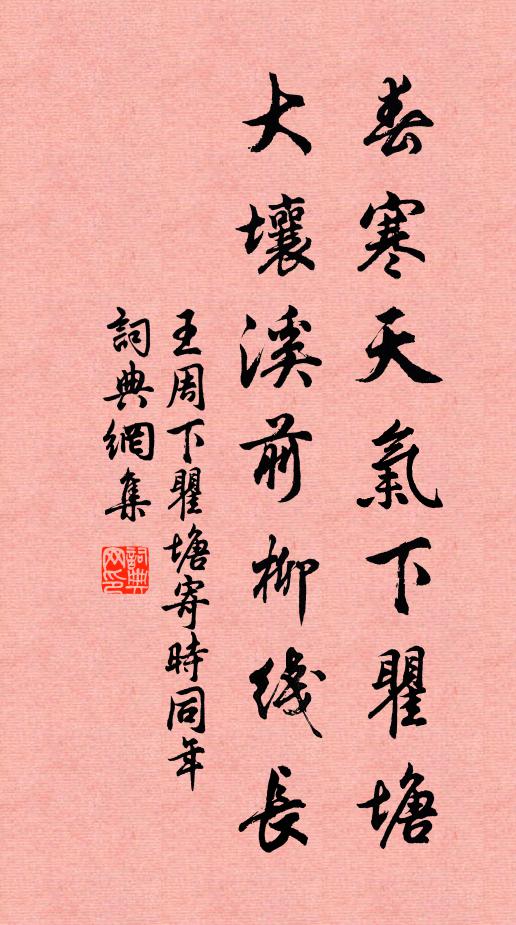 春寒天氣下瞿塘
大壤溪前柳线長
王周下瞿塘寄時同年
詞典網集
詞典網印